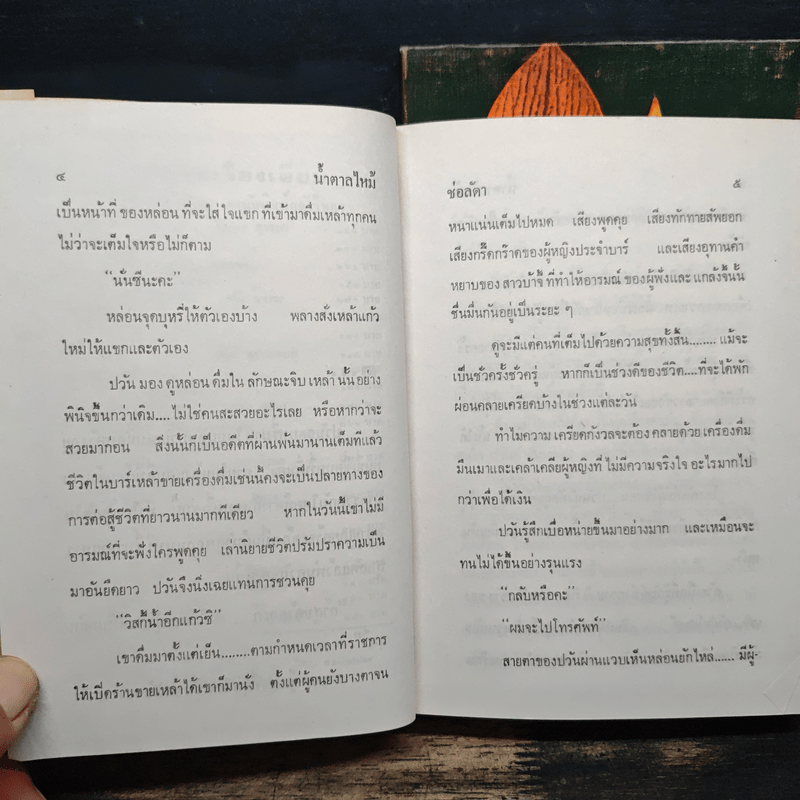 ๔ น้ำตาลไหม้
เป็นหน้าที่ ของหล่อน ที่จะใส่ ใจแขก ที่เข้ามาดื่มเหล้าทุกคน
ไม่ว่าจะเต็มใจหรือไม่ก็ตาม
“นั่นซีนะคะ”
หล่อนจุดบุหรี่ให้ตัวเองบ้าง พลางสั่งเหล้าแก้ว
ใหม่ให้แขกและตัวเอง
ปวัน มอง ดูหล่อน ดื่มใน ลักษณะจิบ เหล้า นั้น อย่าง
พินิจขึ้นกว่าเดิม.... ไม่ใช่คนสะสวยอะไรเลย หรือหากว่าจะ
สวยมาก่อน สิ่งนั้นก็เป็นอดีตที่ผ่านพ้นมานานเต็มทีแล้ว
ชีวิตในบาร์เหล้าขายเครื่องดื่มเช่นนี้คงจะเป็นปลายทางของ
การต่อสู้ชีวิตที่ยาวนานมากทีเดียว หากในวันนี้เขาไม่มี
อารมณ์ที่จะฟังใครพูดคุย เล่านิยายชีวิตปรัมปราความเป็น
มาอันยืดยาว ปวันจึงนิ่งเฉยแทนการชวนคุย
“วิสกี้น้ำอีกแก้วซิ”
เขาดื่มมาตั้งแต่เย็น........ตามกำหนดเวลาที่ราชการ
ให้เปิดร้านขายเหล้าได้เขาก็มานั่ง ตั้งแต่ผู้คนยังบางตาจน
ช่อลัดา ๕
หนาแน่นเต็มไปหมด เสียงพูดคุย เสียงทักทายสัพยอก
เสียงกรี๊ดกร๊าดของผู้หญิงประจำบาร์ และเสียงอุทานคำ
หยาบของ สาวบ้าจี้ ที่ทำให้อารมณ์ ของผู้ฟังและ แกล้งจี้นั้น
ชื่นมื่นกันอยู่เป็นระยะ ๆ
ดูจะมีแต่คนที่เต็มไปด้วยความสุขทั้งสิ้น........ แม้จะ
เป็นชั่วครั้งชั่วครู่ หากก็เป็นช่วงดีของชีวิต....ที่จะได้พัก
ผ่อนคลายเครียดบ้างในช่วงแต่ละวัน
ทำไมความ เครียดกังวลจะต้อง คลายด้วย เครื่องดื่ม
มึนเมาและเคล้าเคลียผู้หญิงที่ ไม่มีความจริงใจ อะไรมากไป
กว่าเพื่อได้เงิน
ปวันรู้สึกเบื่อหน่ายขึ้นมาอย่างมาก และเหมือนจะ
ทนไม่ได้ขึ้นอย่างรุนแรง
“กลับหรือคะ”
“ผมจะไปโทรศัพท์”
สายตาของปวันผ่านแวบเห็นหล่อนยักไหล่...... มีผู้-